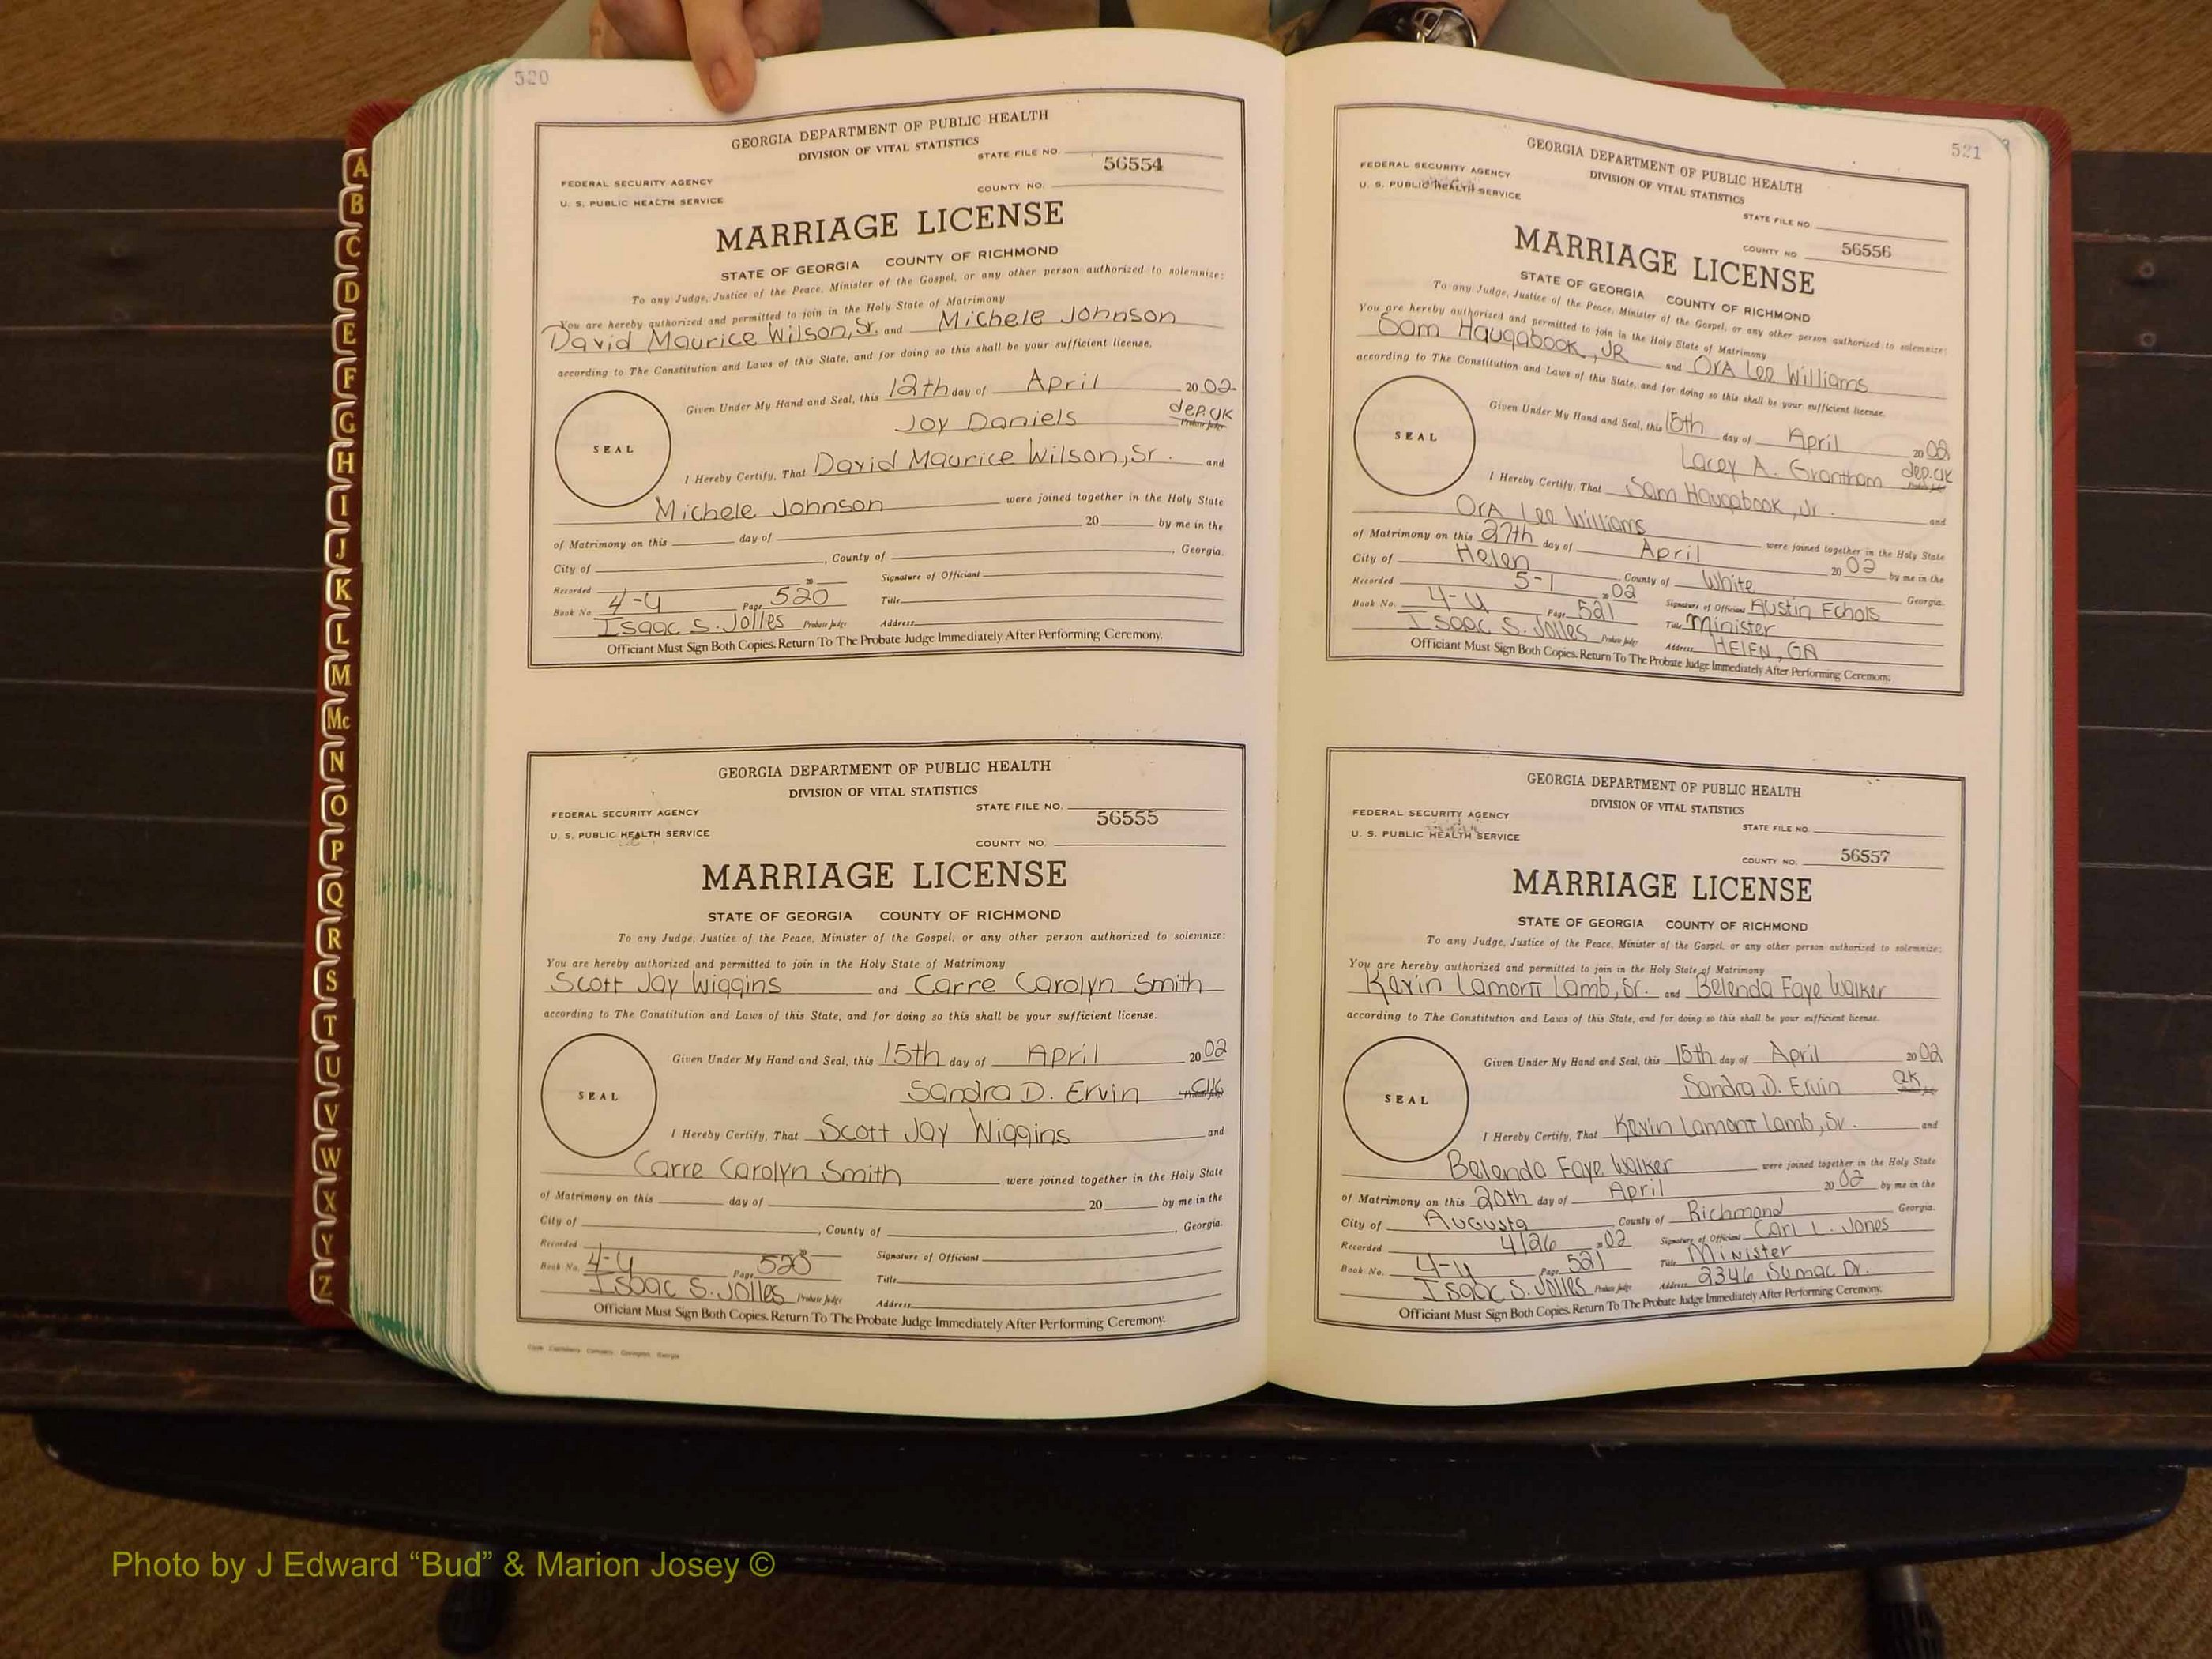 520
GEORGIA DEPARTMENT OF PUBLIC HEALTH
DIVISION OF VITAL STATISTICS
STATE FILE NO. 56554
FEDERAL SECURITY AGENCY
U. S. PUBLIC HEALTH SERVICE
COUNTY NO.
MARRIAGE LICENSE
STATE OF GEORGIA COUNTY OF RICHMOND
To any Judge, Justice of the Peace, Minister of the Gospel, or any other person authorized to solemnize:
You are hereby authorized and permitted to join in the Holy State of Matrimony
David Maurice Wilson, Sr. and Michele Johnson
according to The Constitution and Laws of this State, and for doing so this shall be your sufficient license.
Given Under My Hand and Seal, this 12th day of April 2002
Joy Daniels dep.clk
Probate Judge
SEAL
I Hereby Certify, That David Maurice Wilson, Sr. and
Michele Johnson were joined together in the Holy State
of Matrimony on this day of 20 by me in the
City of , County of , Georgia.
Recorded 20 Signature of Official
Book No. 4-U Page 520 Title
Isaac S. Jolles Probate Judge Address
Officiant Must Sign Both Copies. Return To The Probate Judge Immediately After Performing Ceremony.
GEORGIA DEPARTMENT OF PUBLIC HEALTH
DIVISION OF VITAL STATISTICS
STATE FILE NO. 56555
FEDERAL SECURITY AGENCY
U. S. PUBLIC HEALTH SERVICE
COUNTY NO.
MARRIAGE LICENSE
STATE OF GEORGIA COUNTY OF RICHMOND
To any Judge, Justice of the Peace, Minister of the Gospel, or any other person authorized to solemnize:
You are hereby authorized and permitted to join in the Holy State of Matrimony
Scott Jay Wiggins and Carre Carolyn Smith
according to The Constitution and Laws of this State, and for doing so this shall be your sufficient license.
Given Under My Hand and Seal, this 15th day of April 2002
Sandra D. Ervin Clk
Probate Judge
SEAL
I Hereby Certify, That Scott Jay Wiggins and
Carre Carolyn Smith were joined together in the Holy State
of Matrimony on this day of 20 by me in the
City of , County of , Georgia.
Recorded 20 Signature of Official
Book No. 4-U Page 520 Title
Isaac S. Jolles Probate Judge Address
Officiant Must Sign Both Copies. Return To The Probate Judge Immediately After Performing Ceremony.
521
GEORGIA DEPARTMENT OF PUBLIC HEALTH
DIVISION OF VITAL STATISTICS
FEDERAL SECURITY AGENCY
U. S. PUBLIC HEALTH SERVICE
STATE FILE NO.
COUNTY NO. 56556
MARRIAGE LICENSE
STATE OF GEORGIA COUNTY OF RICHMOND
To any Judge, Justice of the Peace, Minister of the Gospel, or any other person authorized to solemnize:
You are hereby authorized and permitted to join in the Holy State of Matrimony
Sam Haugabook, JR and OrA Lee Williams
according to The Constitution and Laws of this State, and for doing so this shall be your sufficient license.
Given Under My Hand and Seal, this 15th day of April 2002
Lacey A. Grantham dep.clk
Probate Judge
SEAL
I Hereby Certify, That Sam Haugabook, Jr. and
OrA Lee Williams were joined together in the Holy State
of Matrimony on this 27th day of April 2002 by me in the
City of Helen, County of White, Georgia.
Recorded 5-1 2002 Signature of Official Austin Echols
Book No. 4-U Page 521 Title Minister
Isaac S. Jolles Probate Judge Address HELEN, GA
Officiant Must Sign Both Copies. Return To The Probate Judge Immediately After Performing Ceremony.
GEORGIA DEPARTMENT OF PUBLIC HEALTH
DIVISION OF VITAL STATISTICS
FEDERAL SECURITY AGENCY
U. S. PUBLIC HEALTH SERVICE
STATE FILE NO.
COUNTY NO. 56557
MARRIAGE LICENSE
STATE OF GEORGIA COUNTY OF RICHMOND
To any Judge, Justice of the Peace, Minister of the Gospel, or any other person authorized to solemnize:
You are hereby authorized and permitted to join in the Holy State of Matrimony
Kevin Lamont Lamb, Sr. and Belenda Faye Walker
according to The Constitution and Laws of this State, and for doing so this shall be your sufficient license.
Given Under My Hand and Seal, this 15th day of April 2002
Sandra D. Ervin Clk
SEAL
I Hereby Certify, That Kevin Lamont Lamb, Sr. and
Belenda Faye Walker were joined together in the Holy State
of Matrimony on this 20th day of April 2002 by me in the
City of Augusta, County of Richmond Georgia.
Recorded 4/26 2002 Signature of Official Carl L. Jones
Book No. 4-U Page 521 Title Minister
Isaac S. Jolles Probate Judge Address 2346 Sumac Dr.
Officiant Must Sign Both Copies. Return To The Probate Judge Immediately After Performing Ceremony.
A
B
C
D
E
F
G
H
I
J
K
L
M
Mc
N
O
P
Q
R
S
T
U
V
W
X
Y
Z
Photo by J Edward “Bud” & Marion Josey ©